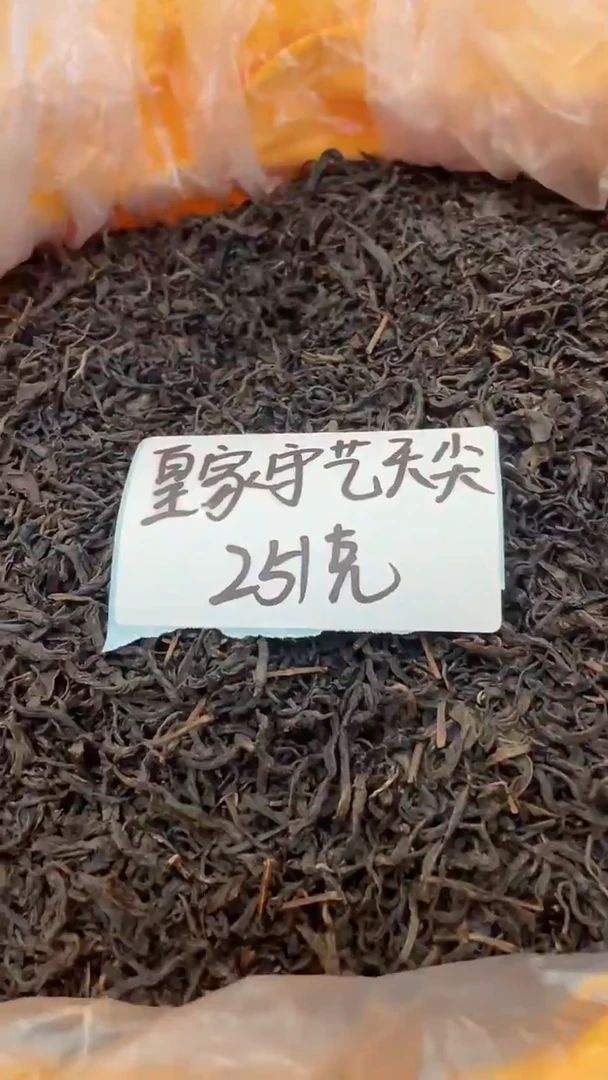 皇家守艺天尖
251克